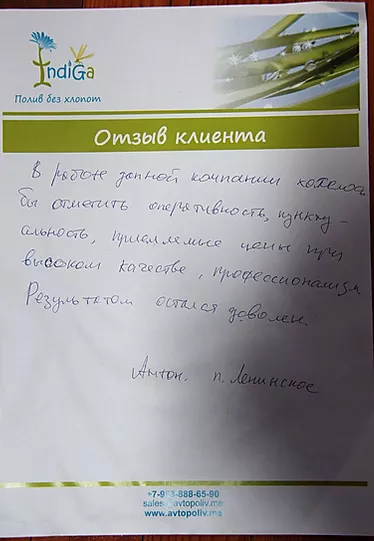 IndiGa
Полив без хлопот
Отзыв клиента
В работе данной компании хотелось
бы отметить оперативность, пункту-
альность, приемлемые цены при
высоком качестве, профессионализм.
Результатом остался доволен.
Антон. п. Ленинское
+7-963-888-65-90
sales@avtopoliv.me
www.avtopoliv.me